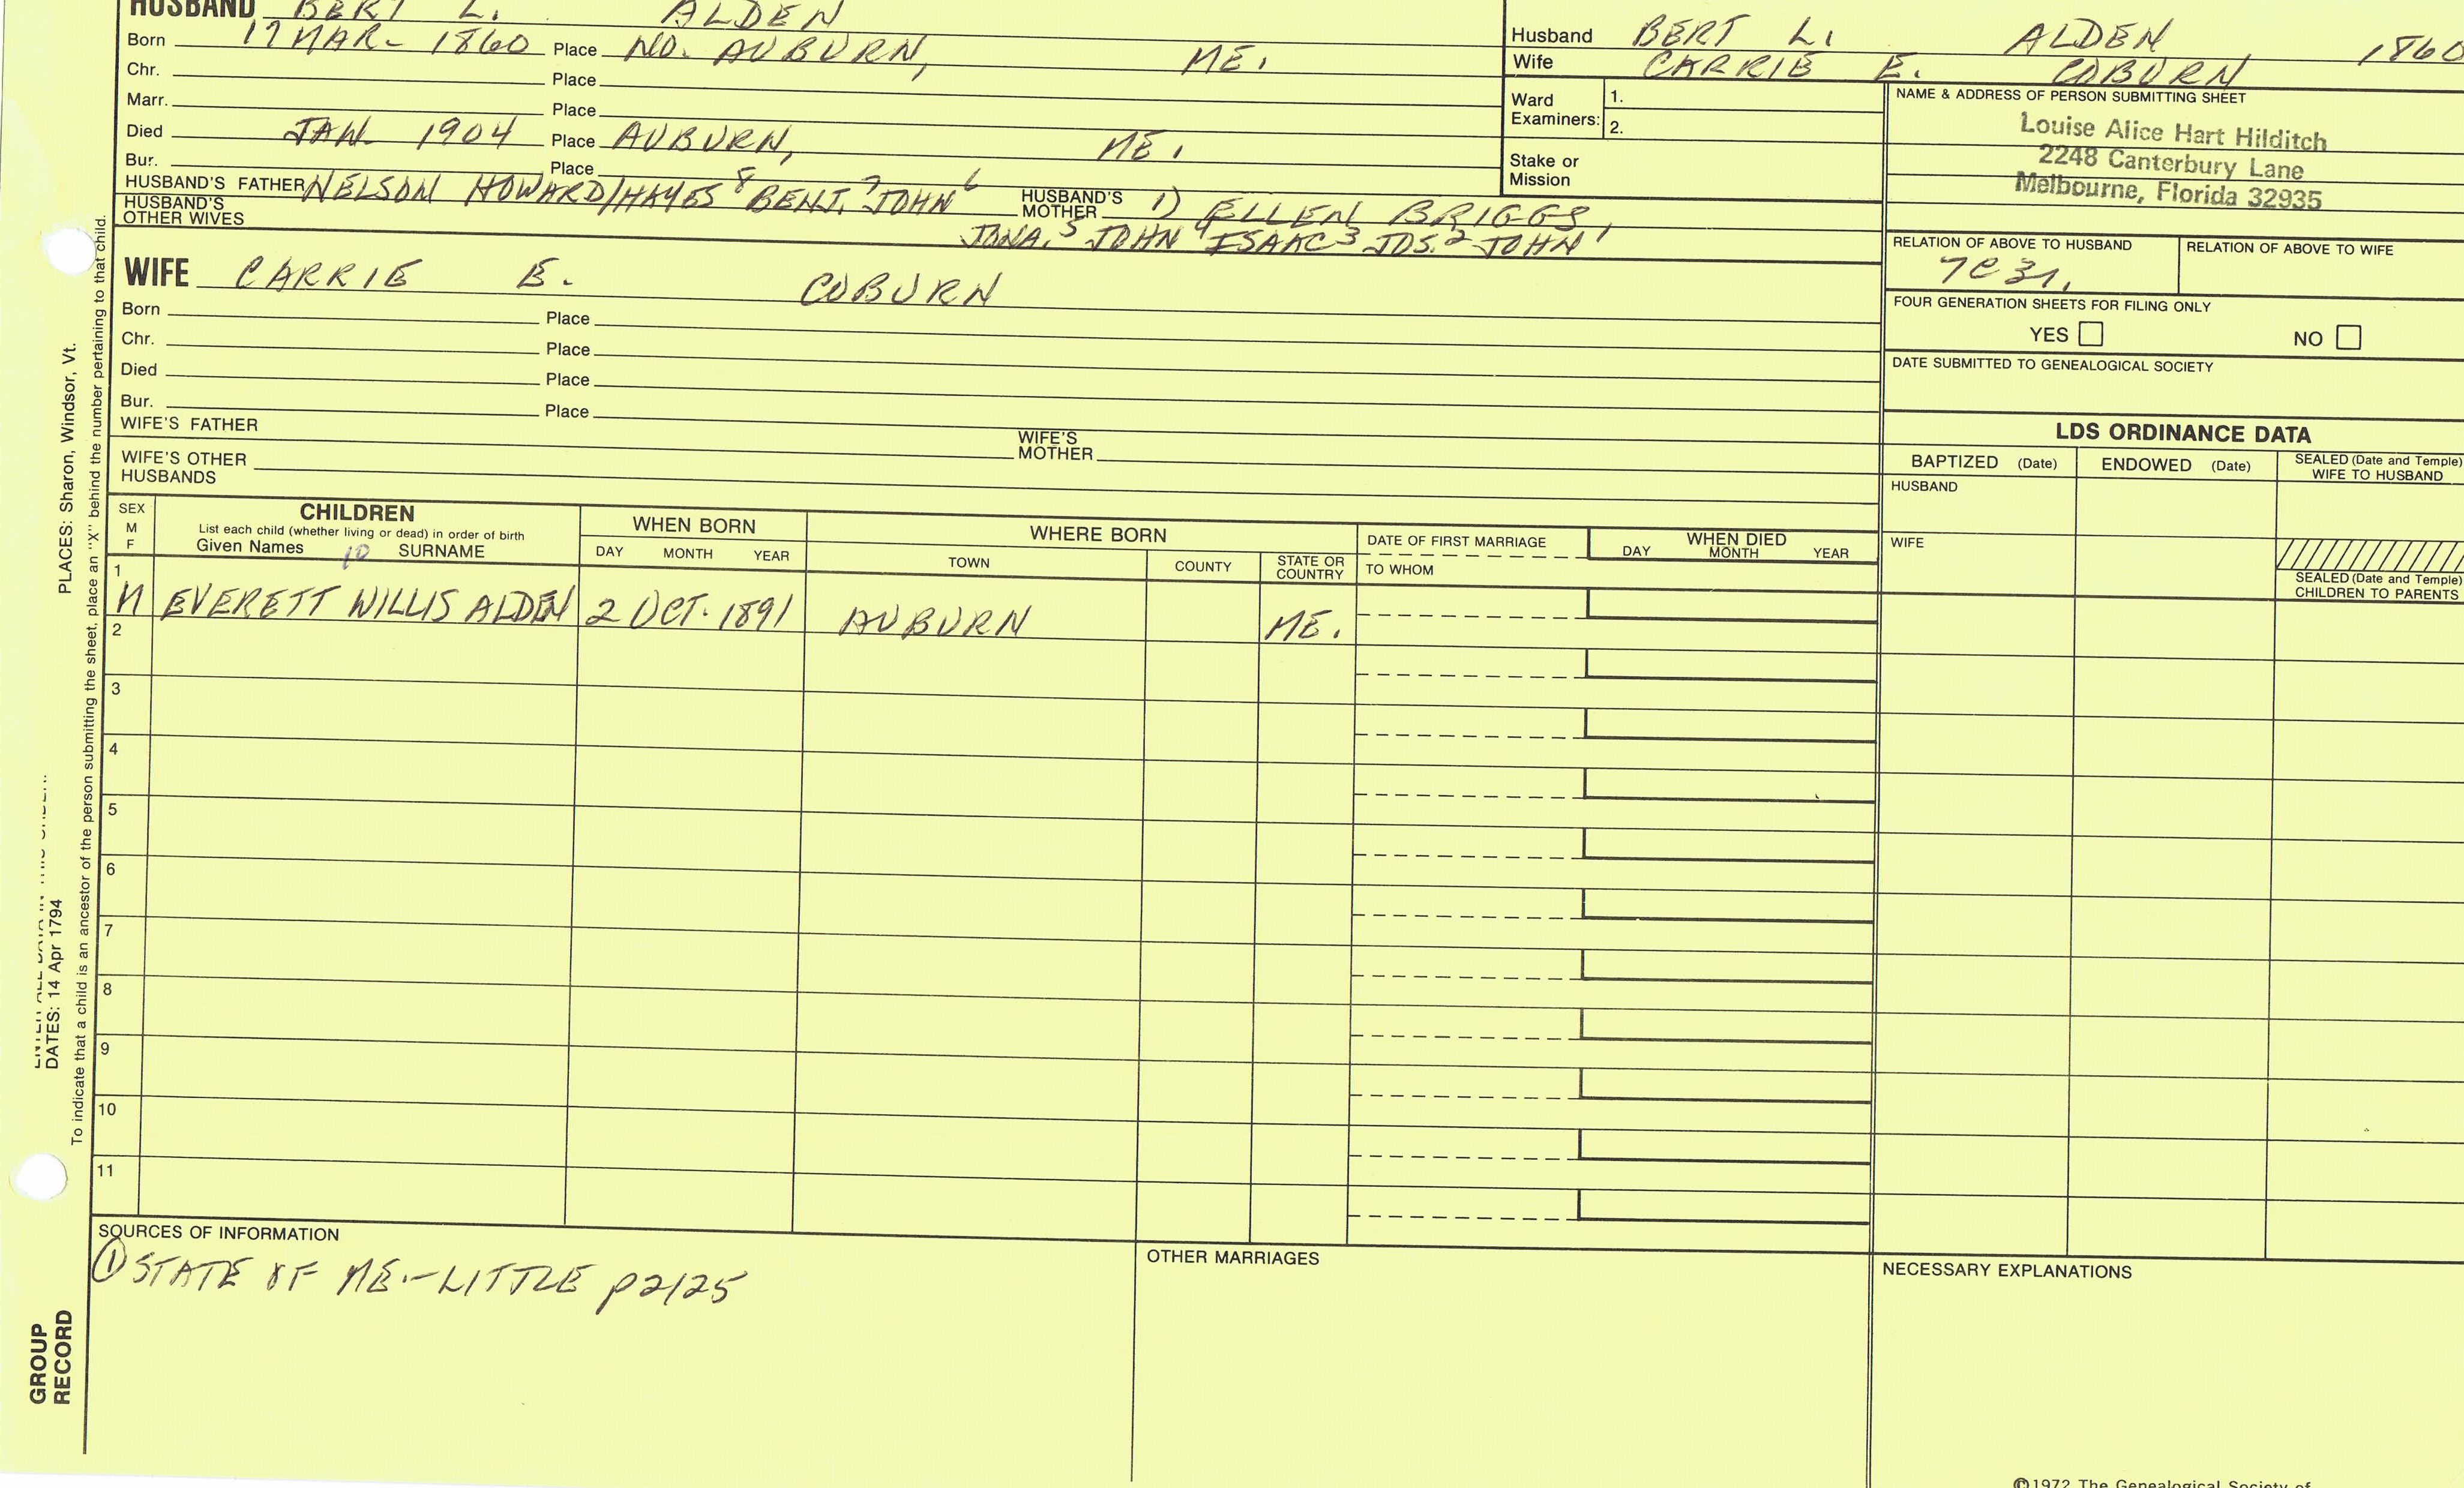 HUSBAND BERT L. ALDEN
Born 17 MAR- 1860 Place NO. AUBURN, ME.
Chr. Place
Marr. Place
Died JAN- 1904 Place AUBURN, ME.
Bur. Place
HUSBAND'S FATHER NELSON HOWARD/HAYES 8 BENJ. 7 JOHN 6 HUSBAND'S MOTHER 1) ELLEN BRIGGS,
HUSBAND'S OTHER WIVES JONA. 5 JOHN 4 ISAAC 3 JOS. 2 JOHN 1
WIFE CARRIE E. COBURN
Born Place
Chr. Place
Died Place
Bur. Place
WIFE'S FATHER WIFE'S MOTHER
WIFE'S OTHER HUSBANDS
Husband BERT L. ALDEN 1860
Wife CARRIE E. COBURN
Ward Examiners: 1.
2.
Stake or Mission
NAME & ADDRESS OF PERSON SUBMITTING SHEET
Louise Alice Hart Hilditch
2248 Canterbury Lane
Melbourne, Florida 32935
RELATION OF ABOVE TO HUSBAND RELATION OF ABOVE TO WIFE
7C3r.
FOUR GENERATION SHEETS FOR FILING ONLY
YES NO
DATE SUBMITTED TO GENEALOGICAL SOCIETY
LDS ORDINANCE DATA
BAPTIZED (Date) ENDOWED (Date) SEALED (Date and Temple) WIFE TO HUSBAND
HUSBAND
WIFE
SEALED (Date and Temple)
CHILDREN TO PARENTS
SEX M F
CHILDREN
List each child (whether living or dead) in order of birth
Given Names 10 SURNAME
WHEN BORN
DAY MONTH YEAR
WHERE BORN
TOWN COUNTY STATE OR COUNTRY
DATE OF FIRST MARRIAGE
TO WHOM
WHEN DIED
DAY MONTH YEAR
1
M EVERETT WILLIS ALDEN 2 OCT. 1891 AUBURN ME.
2
3
4
5
6
7
8
9
10
11
SOURCES OF INFORMATION
① STATE OF ME.-LITTLE p2125
OTHER MARRIAGES
NECESSARY EXPLANATIONS
©1972 The Genealogical Society of
PLACES: Sharon, Windsor, Vt.
DATES: 14 Apr 1794
To indicate that a child is an ancestor of the person submitting the sheet, place an "X" behind the number pertaining to that child.
GROUP
RECORD